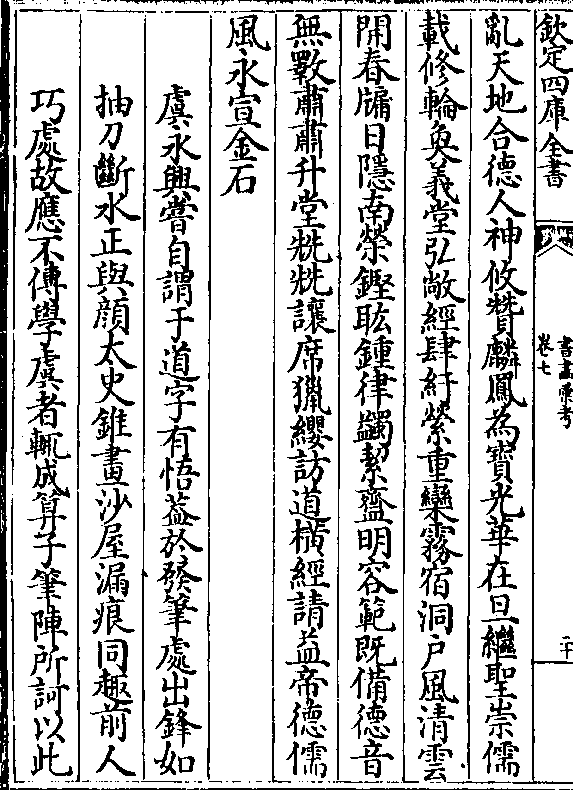 欽定四庫全書
書畫彙考
卷七
二十
亂天地合德人神攸贊麟鳳為寶光華在旦繼聖崇儒
載修輪奐義堂弘敞經肆紆縈重欒霧宿洞户風清雲
開春牖日隱南榮鏗鈜鍾律蠲絜齍明容範既備德音
無斁肅肅升堂兟兟讓席獵纓訪道横經請益帝德儒
風永宣金石
虞永興嘗自謂于道字有悟葢於發筆處出鋒如
抽刀斷水正與顔太史錐畫沙屋漏痕同趣前人
巧處故應不傳學虞者輒成算子筆陣所訶以此